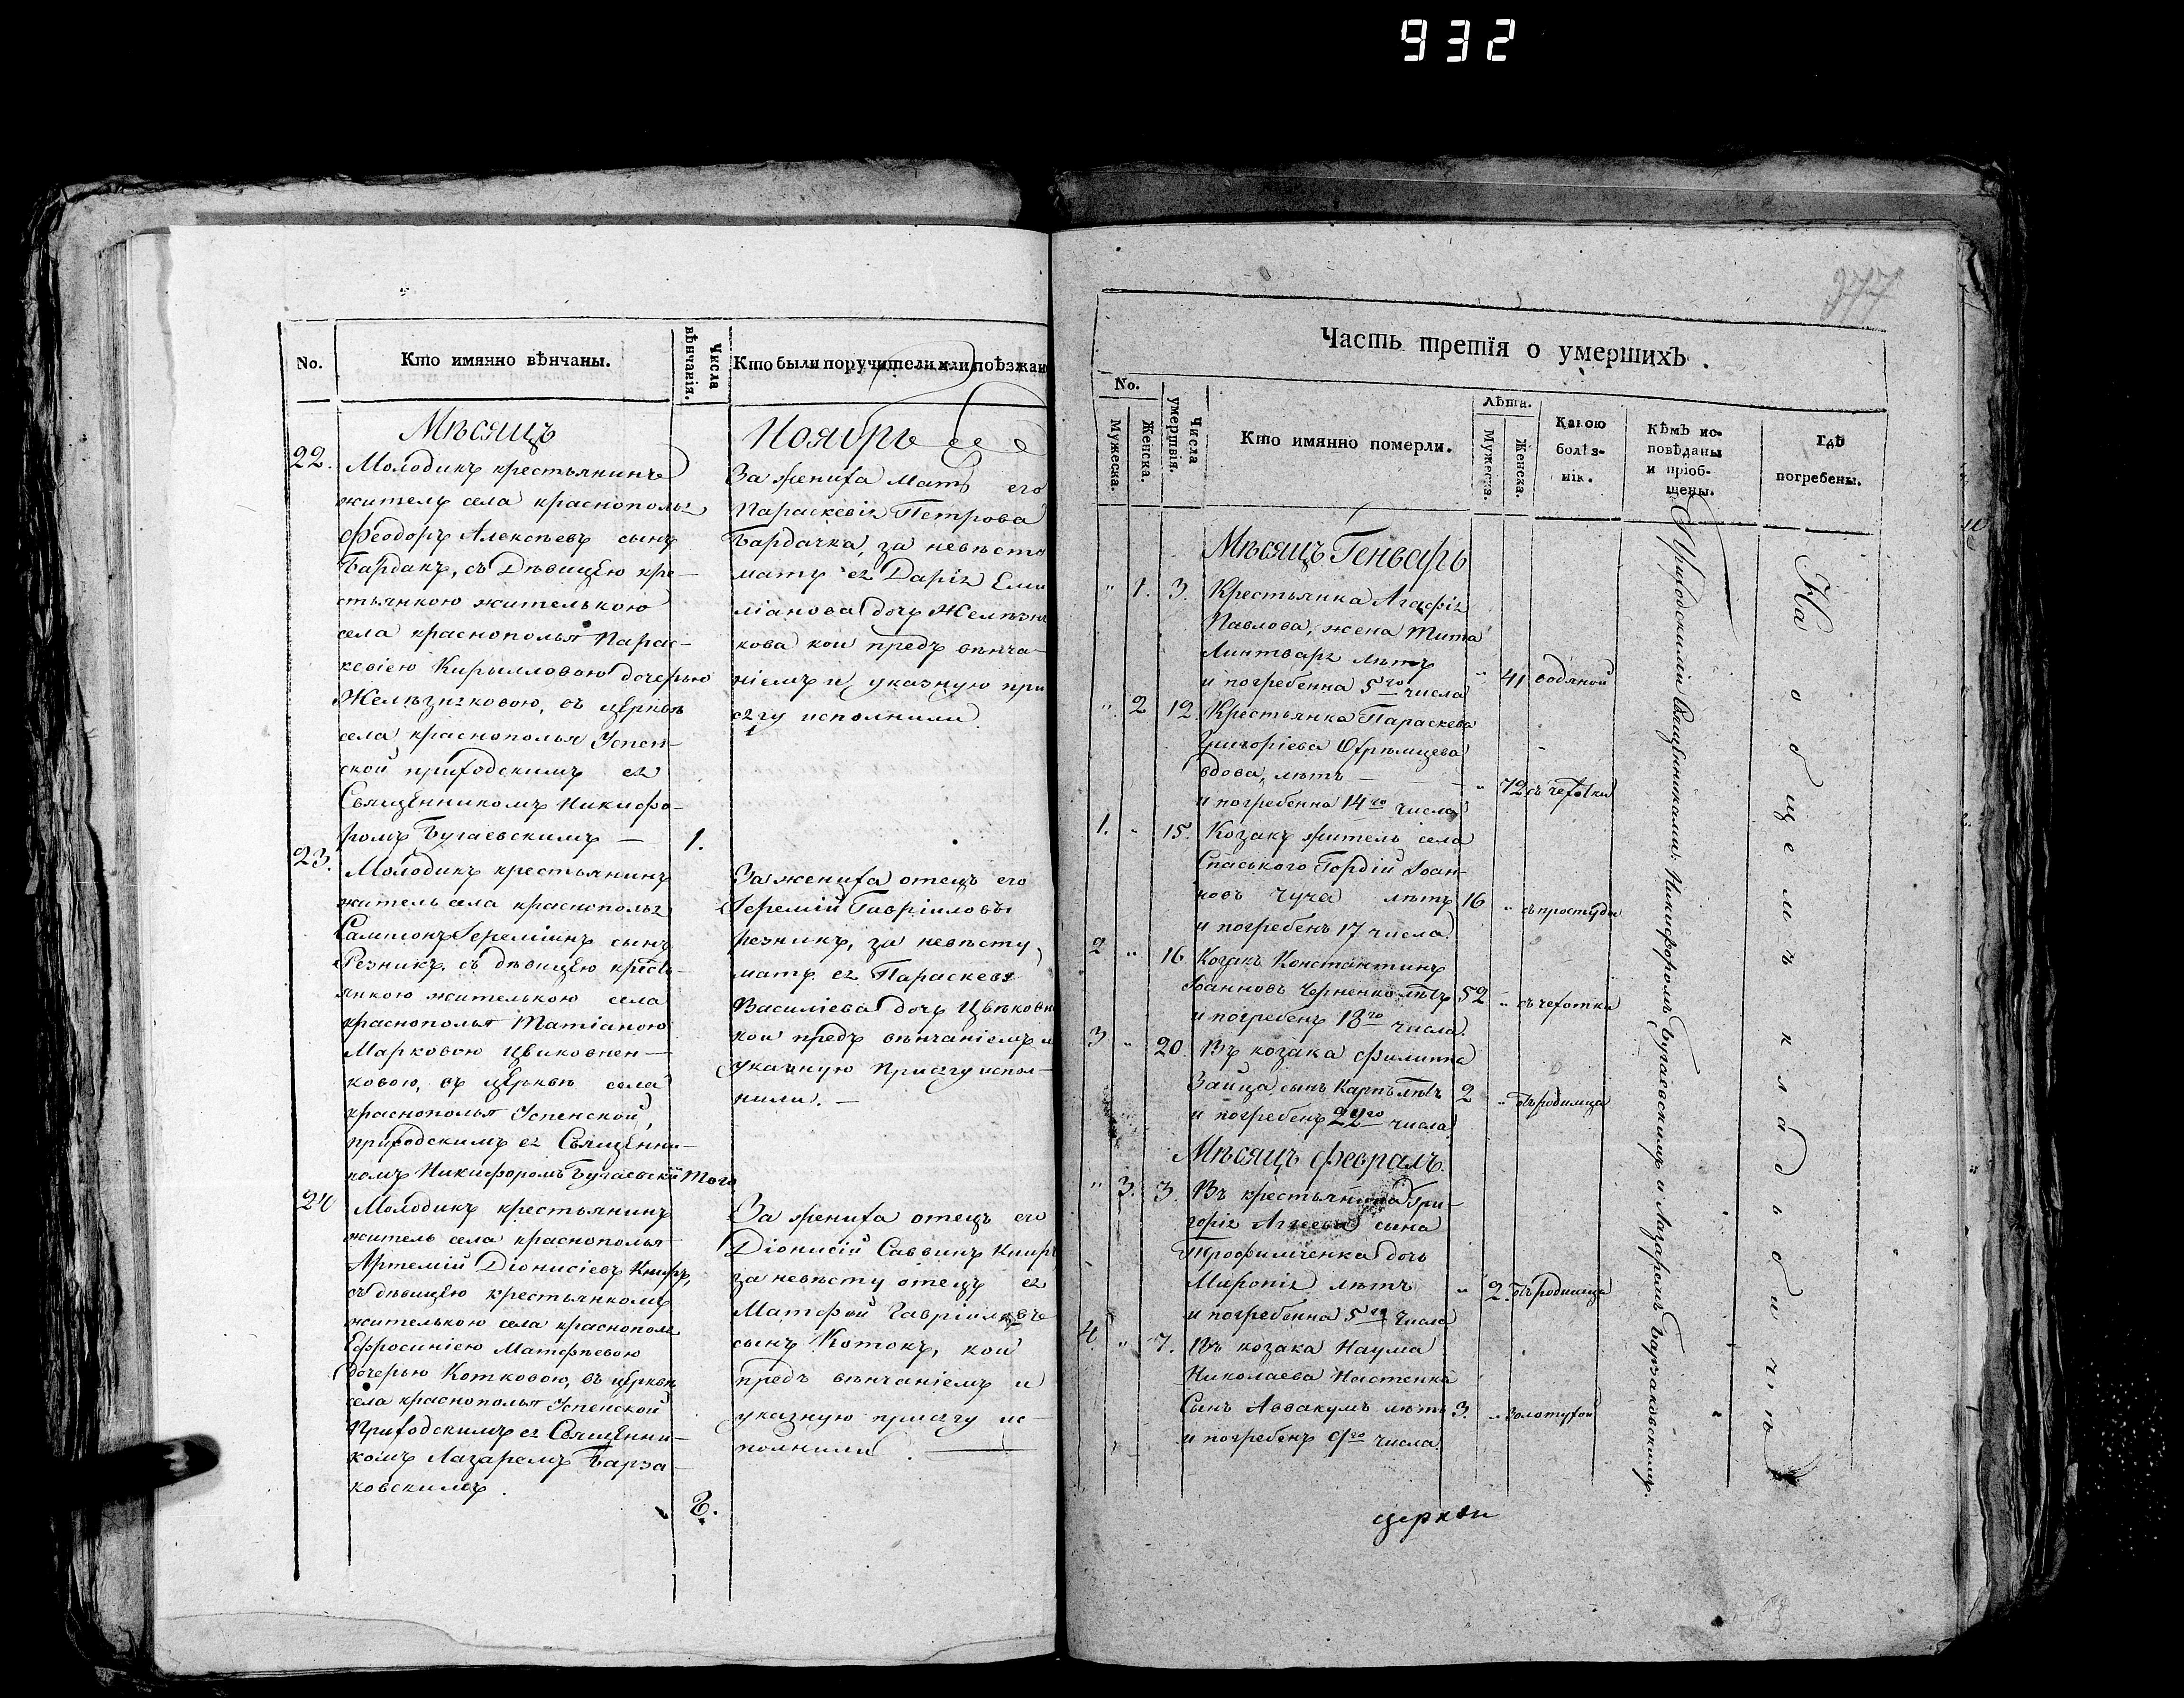 932
No.
Кто имянно вѣнчаны.
Числа вѣнчанія.
Кто были поручители или поѣзжан
Мѣсяцъ
Ноябрь
22.
Молодикъ крестьянинъ
житель села краснополья
Феодоръ Алексѣевъ сынъ
Бардакъ, съ Дѣвицею кре-
стьянкою жителькою
села краснополья Парас-
кевіею Кирылловою дочерью
Желѣзняковою, въ церквѣ
села краснополья Успен-
ской приходскимъ ея
Священникомъ Никифо-
ромъ Бугаевскимъ —
1.
За жениха Мать его
Параскевія Петрова
Бардачка, за невѣсту
мать ея Дарія Еми
ліанова дочь Желѣзня
кова кои предъ вѣнча-
ніемъ и указную при
сягу исполнили
23.
Молодикъ крестьянинъ
житель села краснополья
Сампсонъ Іереміинъ сынъ
Резникъ, съ дѣвицею кресть-
янкою жителькою села
краснополья Татіаною
Марковою Цвиковнен-
ковою, въ церквѣ села
краснополья Успенской,
приходскимъ ея Священни-
комъ Никифоромъ Бугаевскі
Того
За жениха отецъ его
Іеремій Гавріиловъ
резникъ, за невѣсту
мать ея Параскева
Василіева дочь
кои предъ вѣнчаніемъ и
указную присягу испол-
нили. —
24
Молодикъ крестьянинъ
житель села краснополья
Артемій Діонисіевъ Книръ,
съ дѣвицею крестьянкою
жителькою села краснополья
Ефросиніею Матфѣевою
дочерью Котковою, въ церквѣ
села краснополья Успенской
Приходскимъ ея Священни-
комъ Лазаремъ Барза-
ковскимъ.
2.
За жениха отецъ его
Діонисій Саввинъ Книръ
за невѣсту отецъ ея
Матфей Гавріиловъ
сынъ Котокъ, кои
предъ вѣнчаніемъ и
указную присягу ис-
полнили
377
Часть третія о умершихъ.
No.
Мужеска.
Женска.
Числа умертвія.
Кто имянно померли.
Лѣта.
Мужеска.
Женска.
Какою
болѣз-
нію.
Кѣмъ ис-
повѣданы
и пріоб-
щены.
Гдѣ
погребены.
Мѣсяцъ Генварь
" 1. 3. Крестьянка Агафія
Павлова, жена Тита
Линтваря лѣтъ
и погребенна 5го числа " 41 водяной
" 2 12 Крестьянка Параскева
Григоріева
вдова, лѣтъ — " 72 съ чехотки
и погребенна 14го числа
1. " 15. Козакъ житель села
Спаського Гордій Іоан-
новъ Чуча лѣтъ 16 " съ простуды
и погребенъ 17 числа.
2 " 16 Козакъ Константинъ
Іоанновъ Черненко лѣтъ 52 " съ чехотки
и погребенъ 18го числа.
3 " 20. Въ козака Филиппа
Зайца сынъ Карпъ лѣтъ 2 " отъ родимца
и погребенъ 22го числа
Мѣсяцъ Февраль.
" 3. 3. Въ крестьянина Гри-
горія Агѣева сына
Трофимченка дочь
Миропія лѣтъ " 2. отъ родимца
и погребенна 5го числа
4 " 7. Въ козака Наума
Николаева Костенка
Сынъ Аввакумъ лѣтъ 3. " золотухой
и погребенъ 9го числа
Приходскими Священниками: Никифоромъ Бугаевскимъ и Лазаремъ Барзаковскимъ.
На общемъ кладьбищѣ
церкви